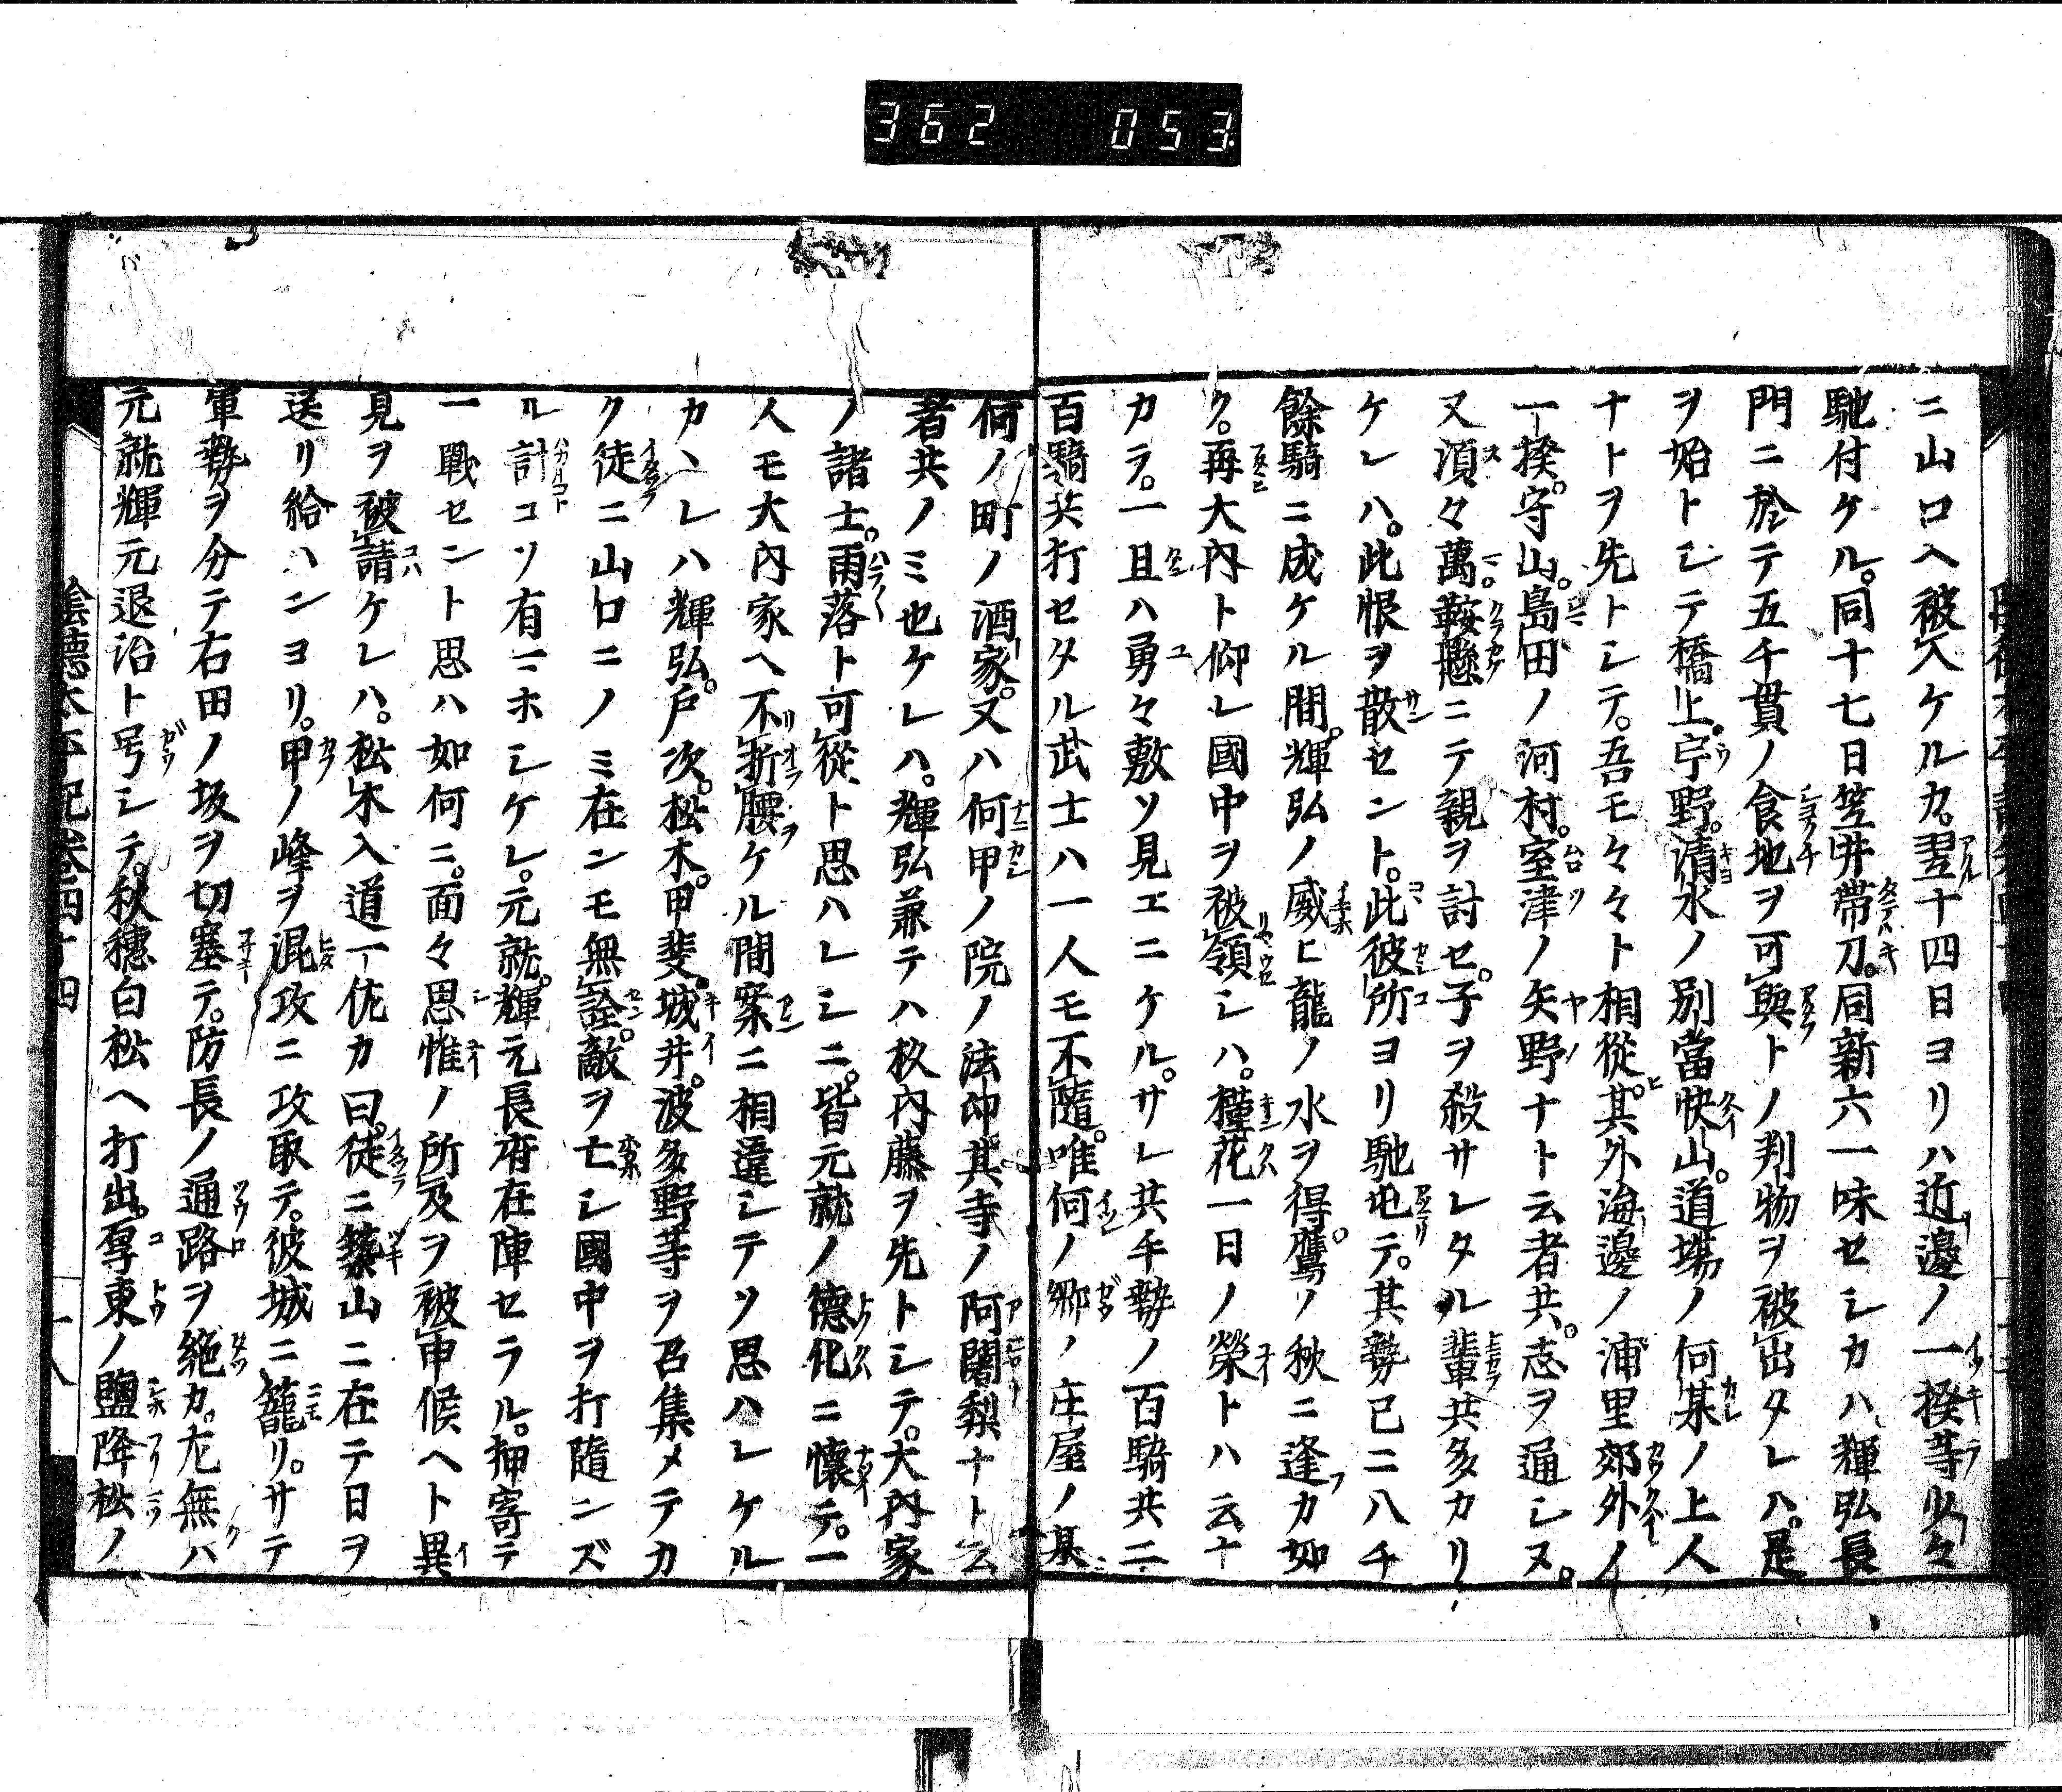 362 053
ニ山口ヘ被入ケルカ。翌十四日ヨリハ近邊ノ一揆等少々
馳付ケル。同十七日笠井帶刀。同新六一味セシカハ輝弘長
門ニ於テ五千貫ノ食地ヲ可與トノ判物ヲ被出タレハ。是
ヲ始トシテ橋上。宇野。清水ノ別當快山。道場ノ何某ノ上人
ナトヲ先トシテ。吾モ々々ト相從。其外海邊ノ浦里郊外ノ
一揆。守山。島田ノ河村。室津ノ矢野ナト云者共。志ヲ通シヌ。
又須々萬。鞍懸ニテ親ヲ討セ。子ヲ殺サレタル輩共多カリ
ケレハ。此恨ヲ散セント。此彼所ヨリ馳屯テ。其勢已ニ八千
餘騎ニ成ケル間。輝弘ノ威ヒ龍ノ水ヲ得。鷹ノ秋ニ逢カ如
ク。再大内ト仰レ國中ヲ被領シハ。槿花一日ノ榮トハ云ナ
カラ。一旦ハ勇々敷ソ見エニケル。サレ共手勢ノ百騎共二
百騎共打セタル武士ハ一人モ不隨。唯何ノ郷ノ庄屋ノ某
何ノ町ノ酒家。又ハ何甲ノ院ノ法印。其寺ノ阿闍梨ナト云
者共ノミ也ケレハ。輝弘兼テハ杦内藤ヲ先トシテ。大内家
ノ諸士。雨落ト可從ト思ハレシニ。皆元就ノ德化ニ懷テ。一
人モ大内家ヘ不折腰ケル間案ニ相違シテソ思ハレケル
カヽレハ輝弘。戸次。松木。甲斐。城井。波多野等ヲ召集メテカ
ク徒ニ山口ニノミ在ンモ無詮。敵ヲ亡シ國中ヲ打隨ンズ
ル計コソ有ニホシケレ。元就。輝元長府在陣セラル。押寄テ
一戰セント思ハ如何ニ。面々思惟ノ所及ヲ被申候ヘト異
見ヲ被請ケレハ。松木入道一佐カ曰。徒ニ築山ニ在テ日ヲ
送リ給ハンヨリ。甲ノ峰ヲ混攻ニ攻取テ。彼城ニ籠リ。サテ
軍勢ヲ分テ右田ノ坂ヲ切塞テ。防長ノ通路ヲ絶カ。尤無ハ
元就輝元退治ト号シテ。秋穗白松ヘ打出。厚東ノ鹽降松ノ
陰德太平記卷四十四
十八